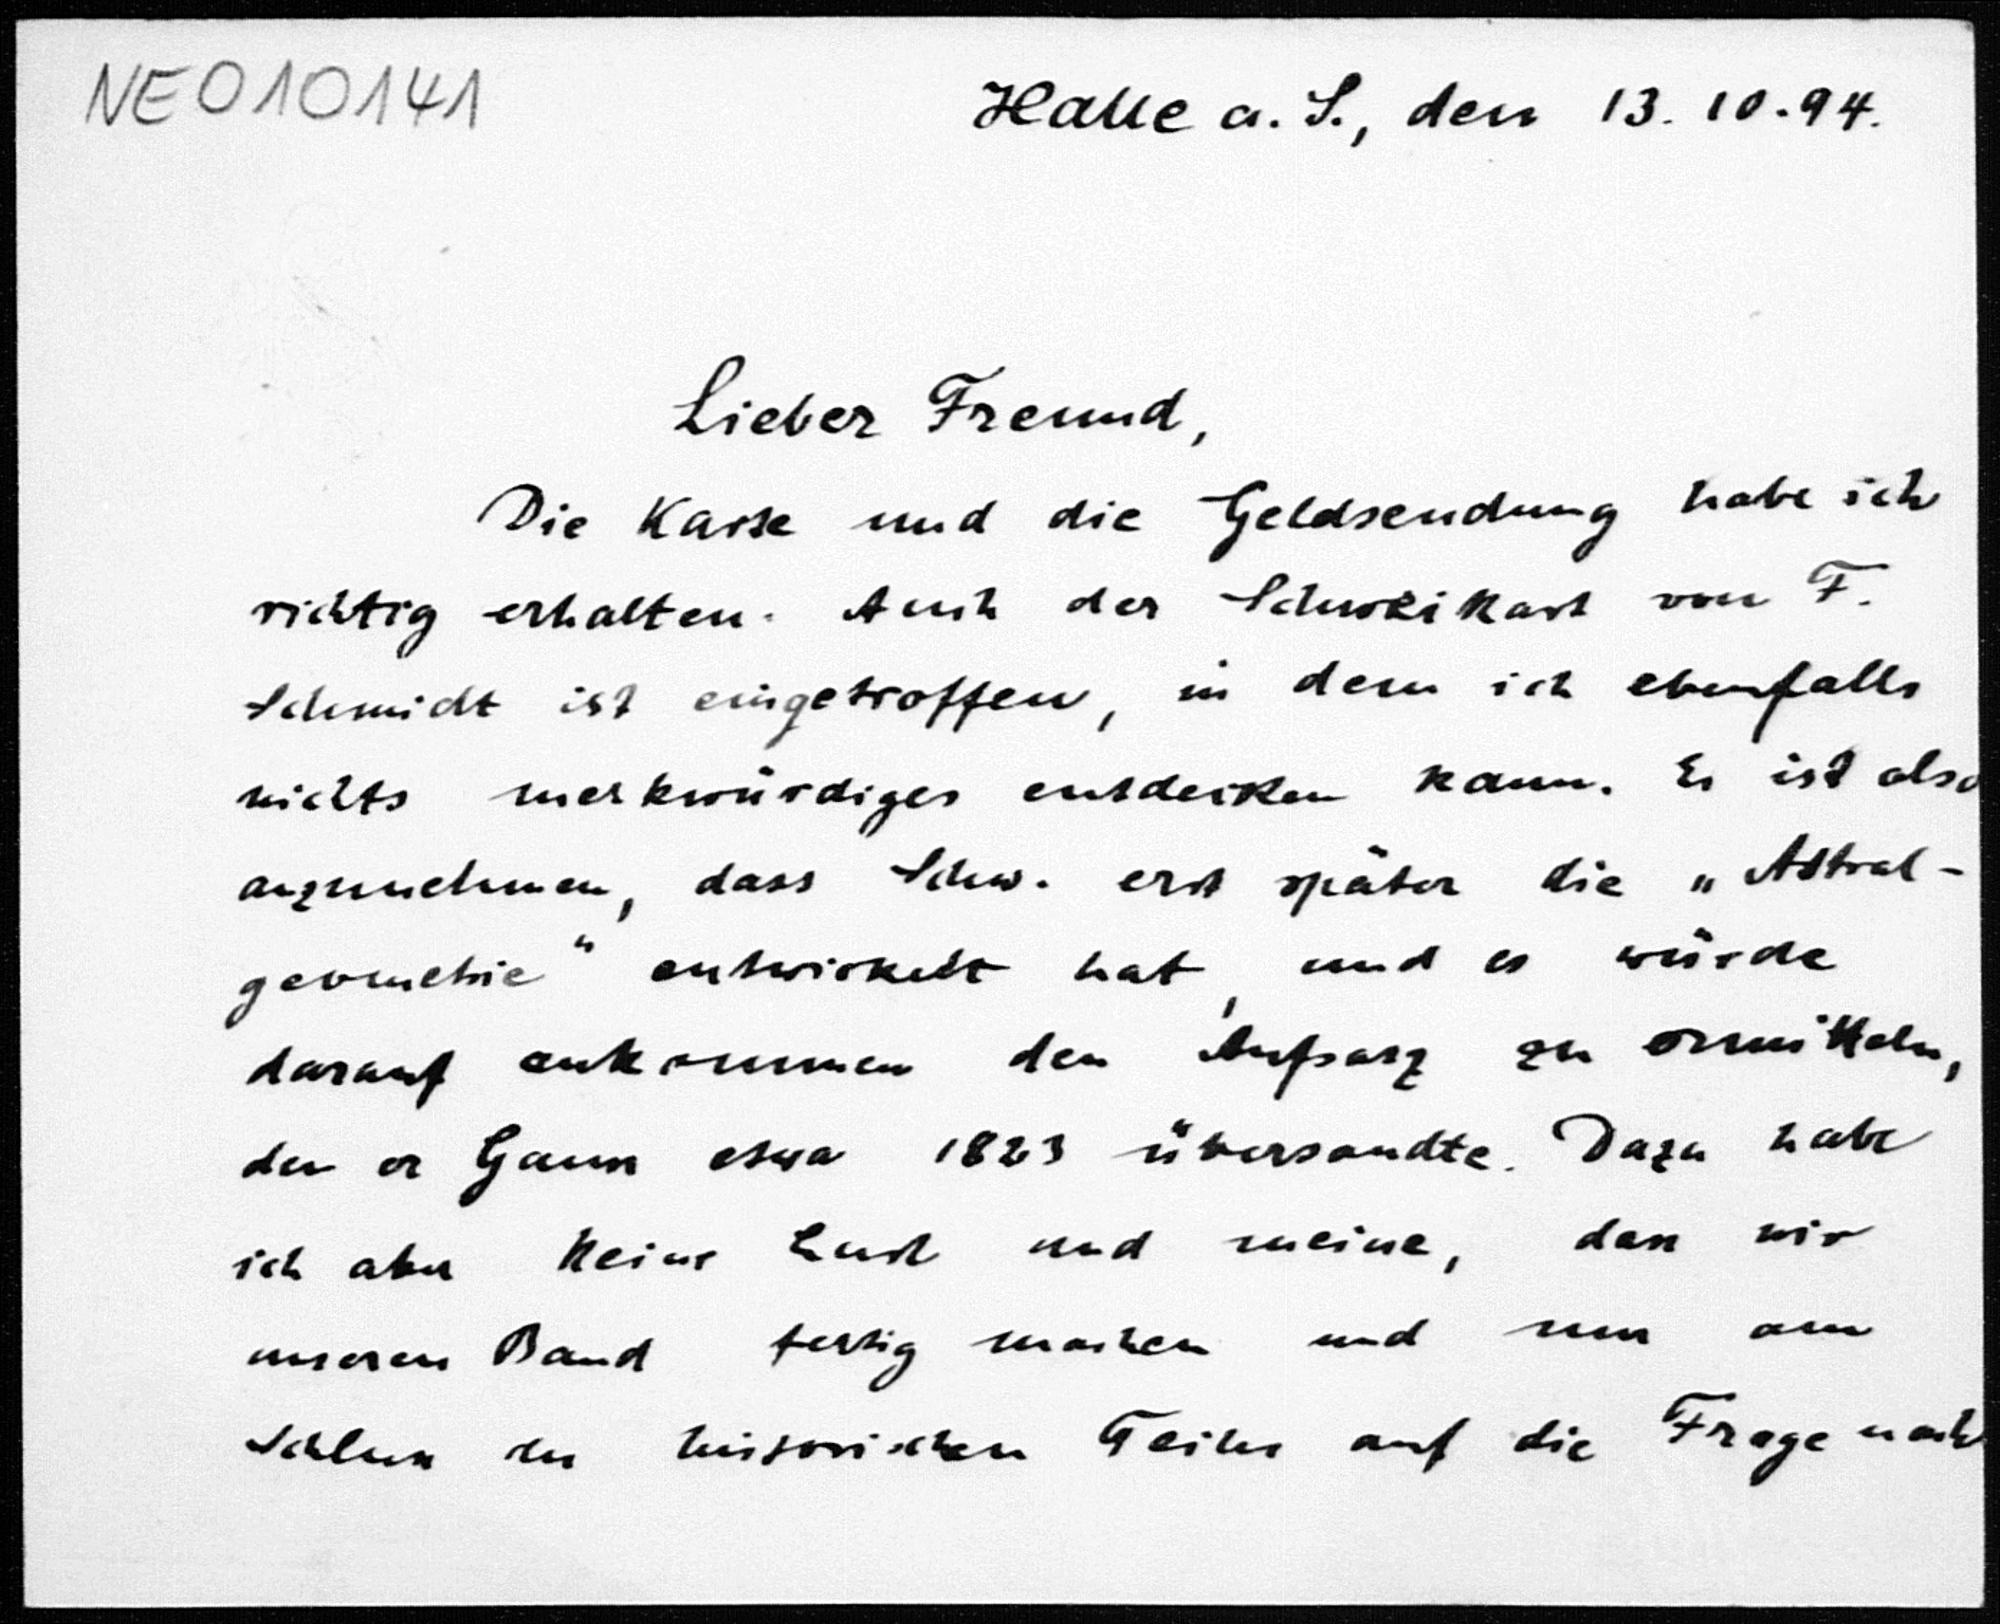 NE010141
Halle a. S., den 13. 10. 94.
Lieber Freund,
Die Karte und die Geldsendung habe ich
richtig erhalten. Auch der Schweikart von F.
Schmidt ist eingetroffen, in dem ich ebenfalls
nichts merkwürdiges entdecken kann. Es ist also
anzunehmen, dass Schw. erst später die „Astral-
geometrie" entwickelt hat, und es würde
darauf ankommen den Aufsatz zu ermitteln,
den er Gauss etwa 1823 übersandte. Dazu habe
ich aber keine Lust und meine, dass wir
unseren Band fertig machen und nur am
Schluss des historischen Teiles auf die Frage nach